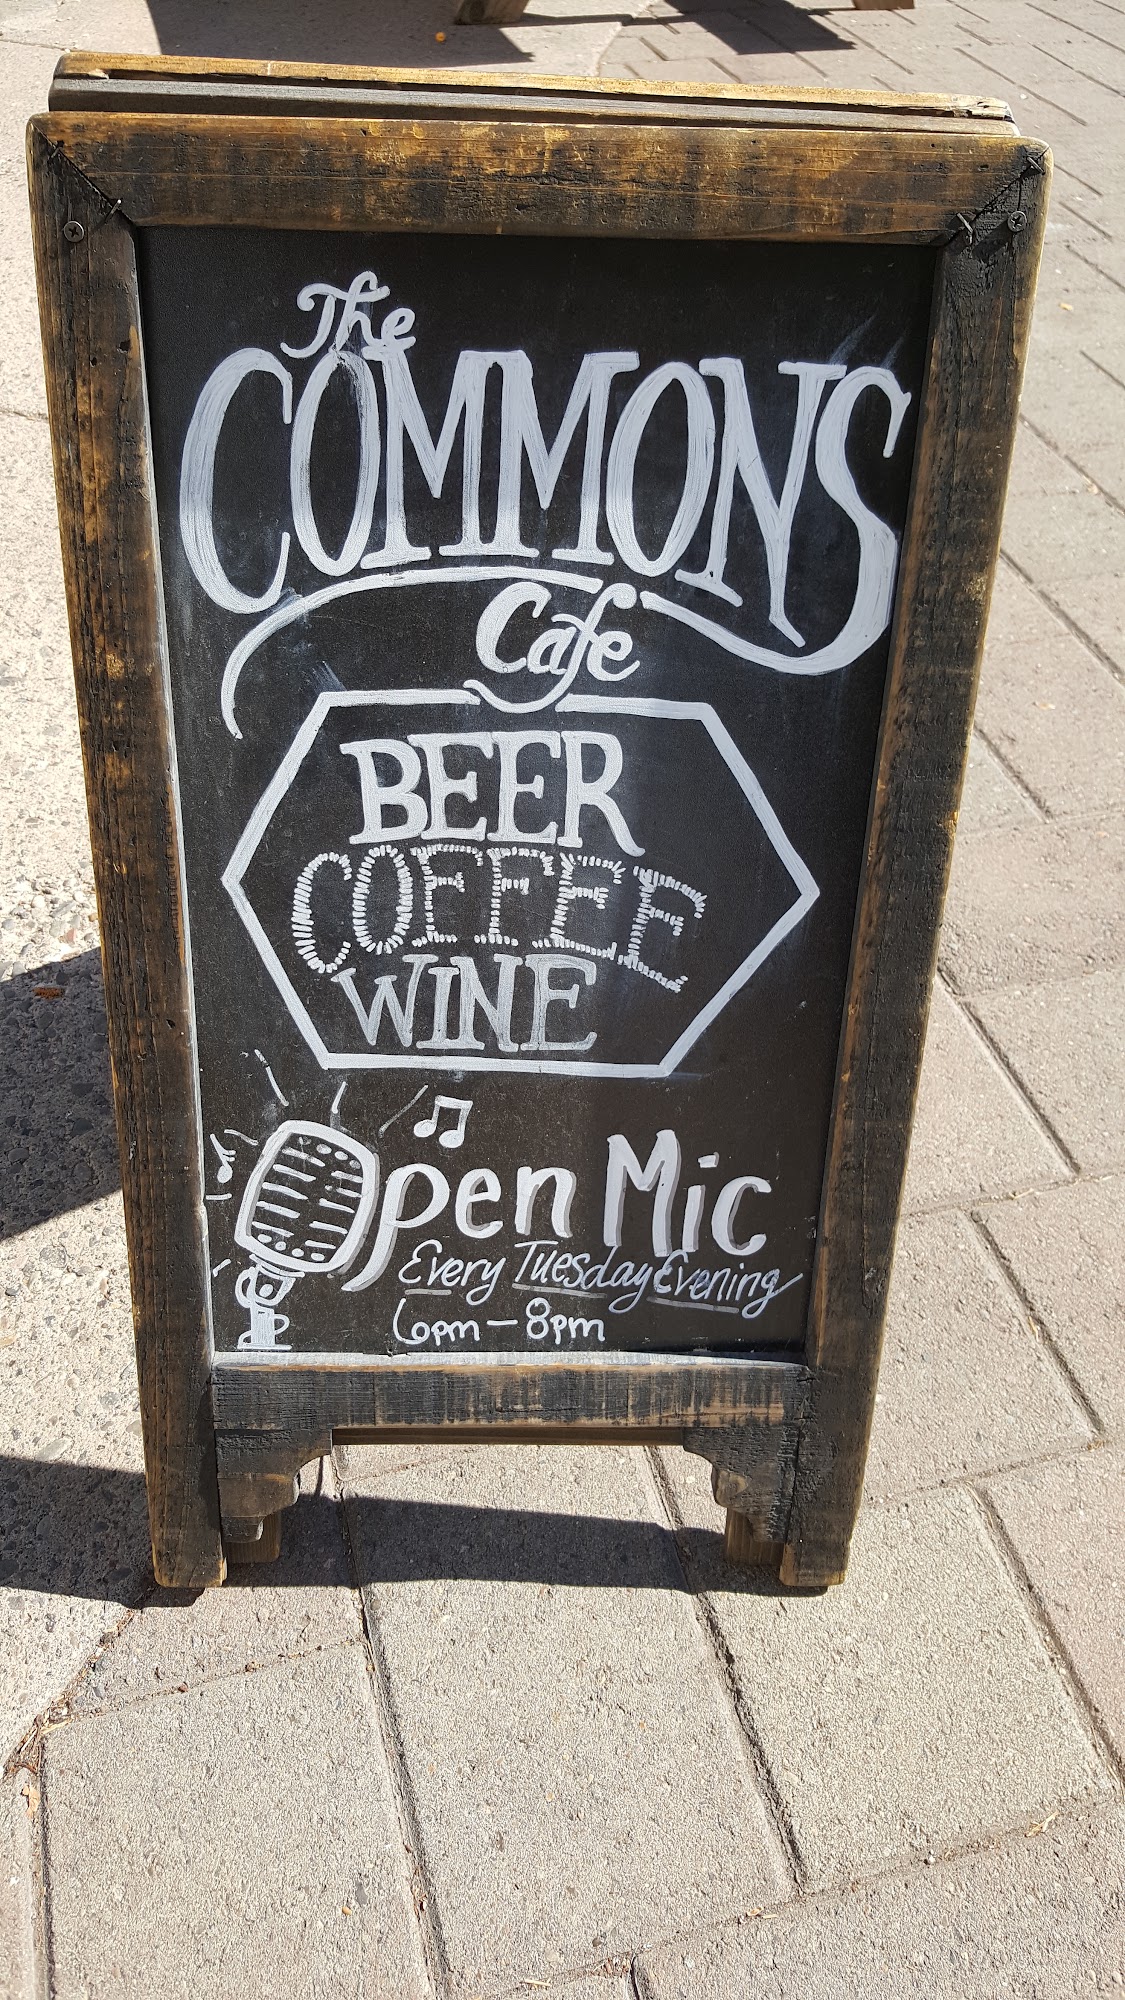 The
COMMONS
Cafe
BEER
COFFEE
WINE
Open Mic
Every Tuesday Evening
6pm - 8pm